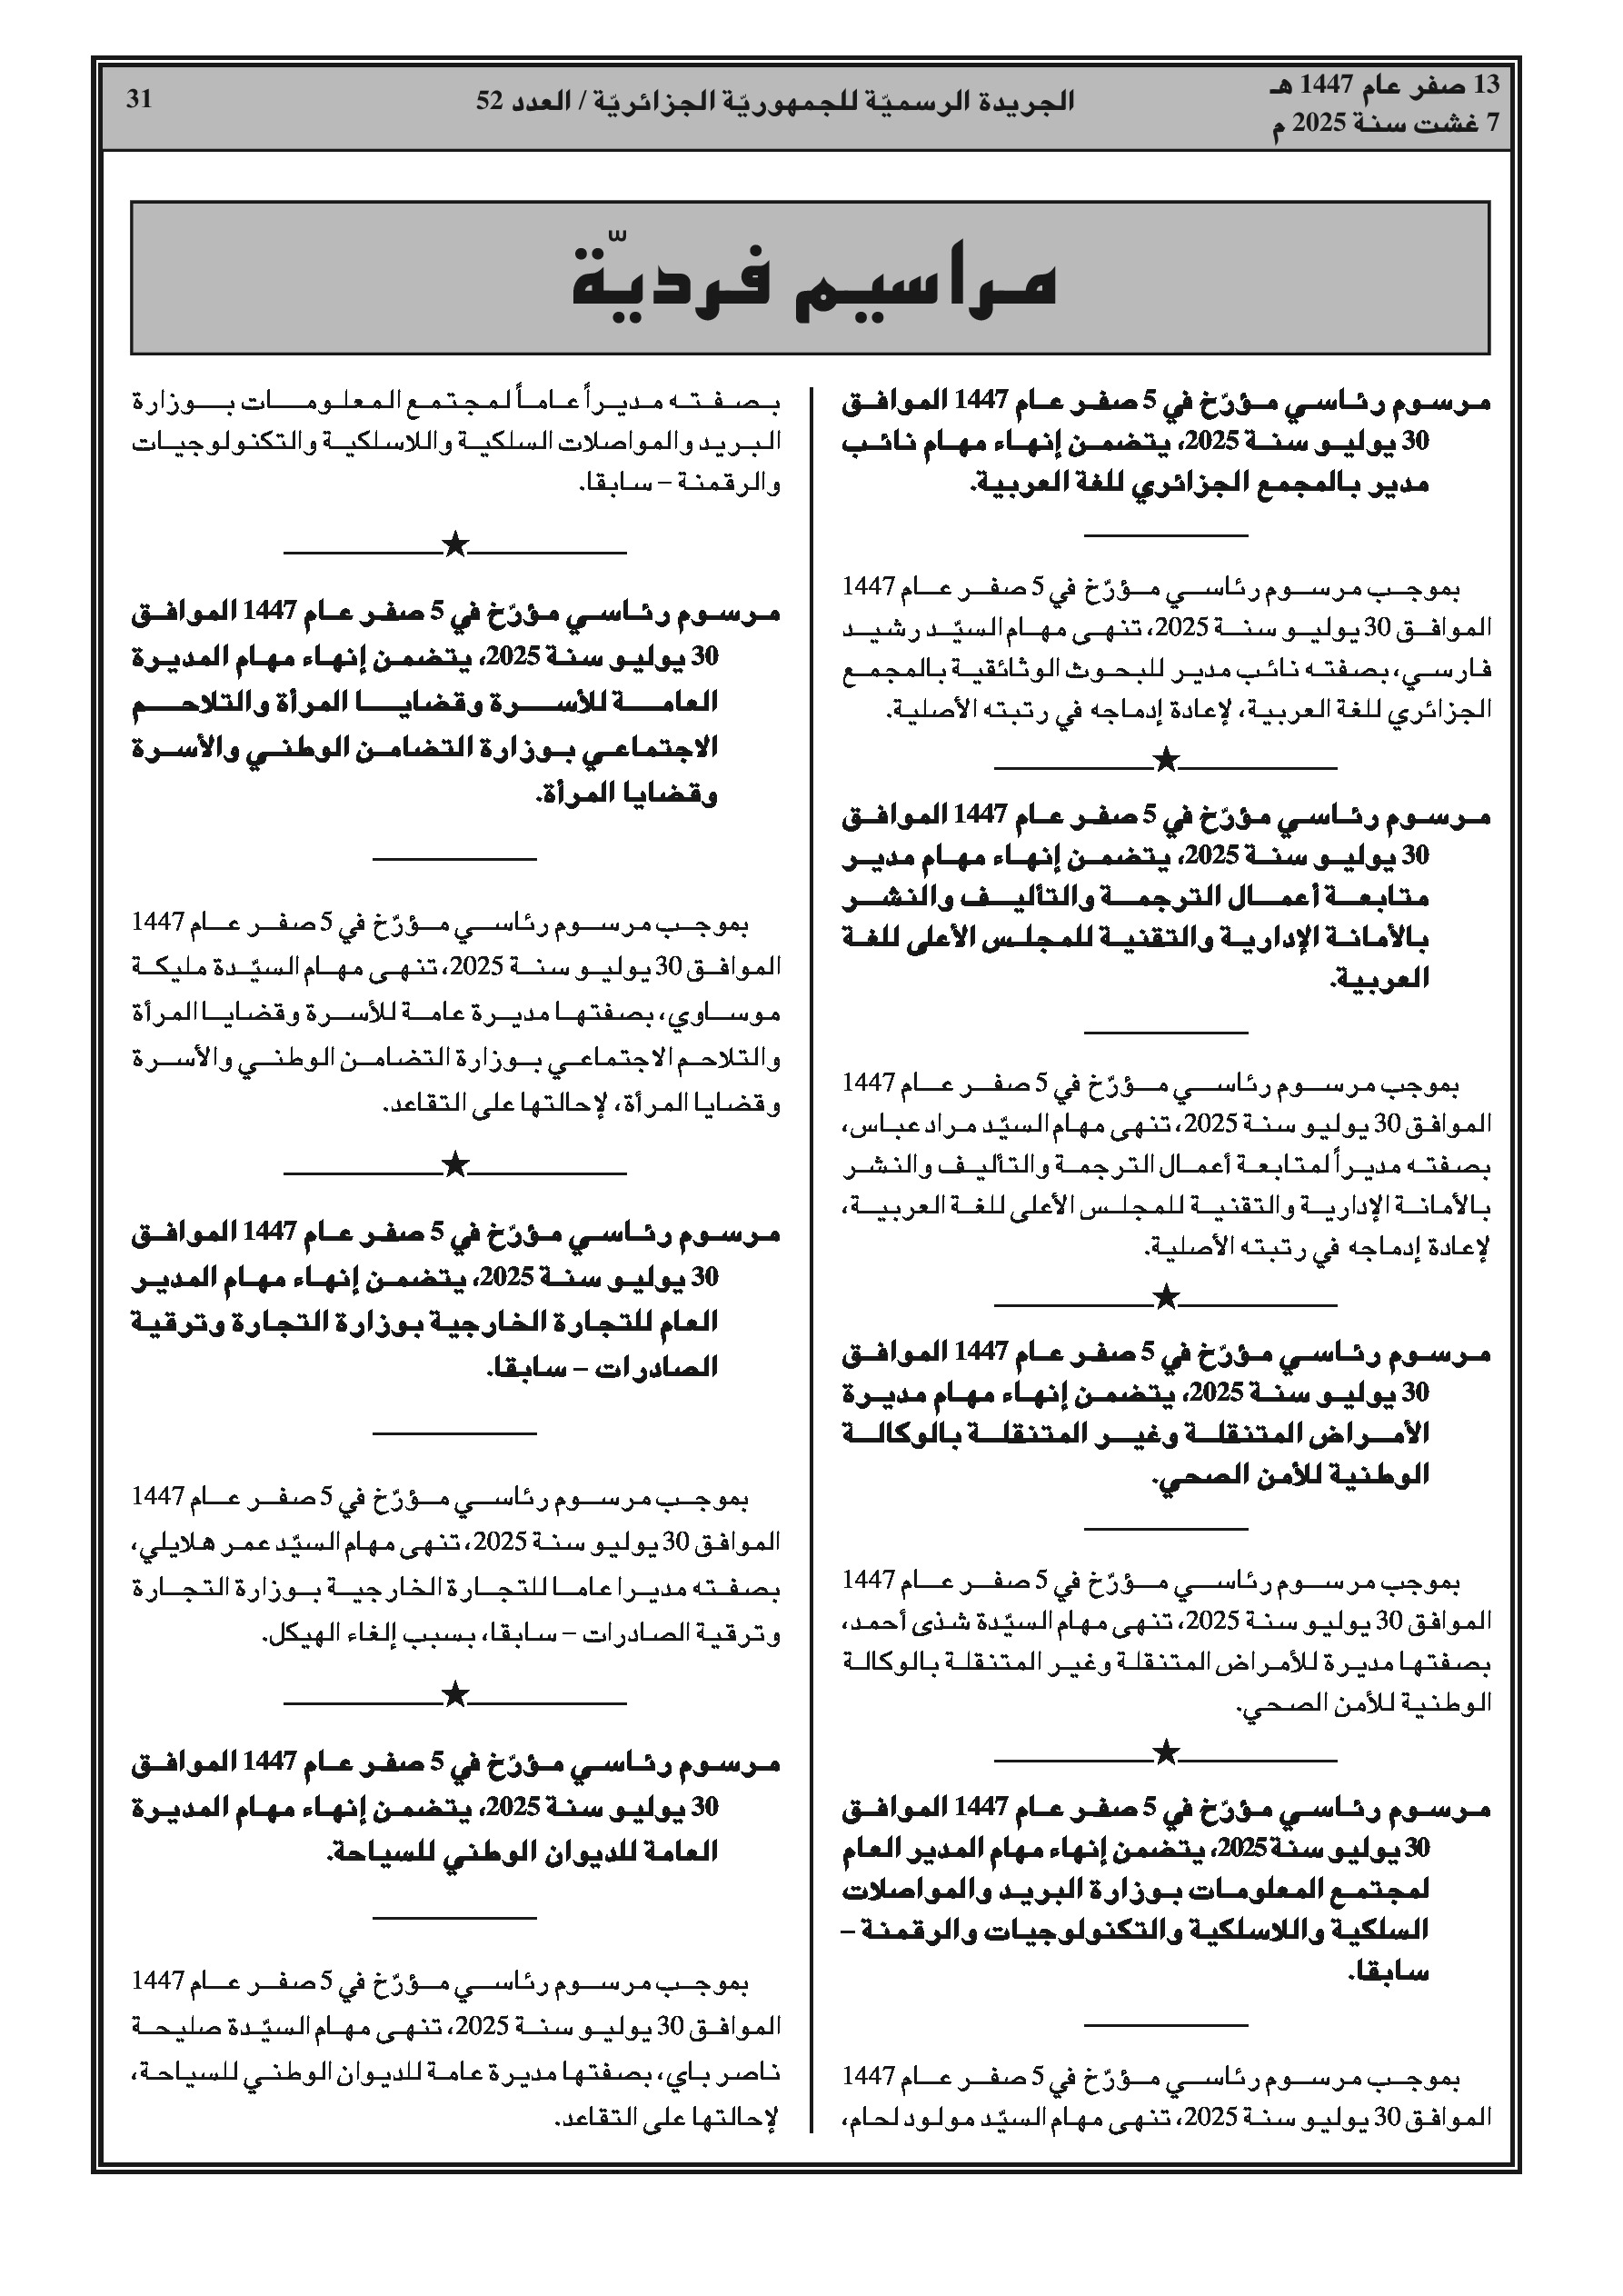 13 صفر عام 1447 هـ
7 غشت سنة 2025 م
الجريدة الرسميّة للجمهوريّة الجزائريّة / العدد 52
31
مراسيم فرديّة
مرسوم رئاسي مؤرّخ في 5 صفر عام 1447 الموافق
30 يوليو سنة 2025، يتضمن إنهاء مهام نائب
مدير بالمجمع الجزائري للغة العربية.
بموجب مرسوم رئاسي مؤرّخ في 5 صفر عام 1447
الموافق 30 يوليو سنة 2025، تنهى مهام السيّد رشيد
فارسي، بصفته نائب مدير للبحوث الوثائقية بالمجمع
الجزائري للغة العربية، لإعادة إدماجه في رتبته الأصلية.
مرسوم رئاسي مؤرّخ في 5 صفر عام 1447 الموافق
30 يوليو سنة 2025، يتضمن إنهاء مهام مدير
متابعة أعمال الترجمة والتأليف والنشر
بالأمانة الإدارية والتقنية للمجلس الأعلى للغة
العربية.
بموجب مرسوم رئاسي مؤرّخ في 5 صفر عام 1447
الموافق 30 يوليو سنة 2025، تنهى مهام السيّد مراد عباس،
بصفته مديراً لمتابعة أعمال الترجمة والتأليف والنشر
بالأمانة الإدارية والتقنية للمجلس الأعلى للغة العربية،
لإعادة إدماجه في رتبته الأصلية.
مرسوم رئاسي مؤرّخ في 5 صفر عام 1447 الموافق
30 يوليو سنة 2025، يتضمن إنهاء مهام مديرة
الأمراض المتنقلة وغير المتنقلة بالوكالة
الوطنية للأمن الصحي.
بموجب مرسوم رئاسي مؤرّخ في 5 صفر عام 1447
الموافق 30 يوليو سنة 2025، تنهى مهام السيّدة شذى أحمد،
بصفتها مديرة للأمراض المتنقلة وغير المتنقلة بالوكالة
الوطنية للأمن الصحي.
مرسوم رئاسي مؤرّخ في 5 صفر عام 1447 الموافق
30 يوليو سنة 2025، يتضمن إنهاء مهام المدير العام
لمجتمع المعلومات بوزارة البريد والمواصلات
السلكية واللاسلكية والتكنولوجيات والرقمنة –
سابقا.
بموجب مرسوم رئاسي مؤرّخ في 5 صفر عام 1447
الموافق 30 يوليو سنة 2025، تنهى مهام السيّد مولود لحام،
بصفته مديراً عاماً لمجتمع المعلومات بوزارة
البريد والمواصلات السلكية واللاسلكية والتكنولوجيات
والرقمنة – سابقا.
مرسوم رئاسي مؤرّخ في 5 صفر عام 1447 الموافق
30 يوليو سنة 2025، يتضمن إنهاء مهام المديرة
العامة للأسرة وقضايا المرأة والتلاحم
الاجتماعي بوزارة التضامن الوطني والأسرة
وقضايا المرأة.
بموجب مرسوم رئاسي مؤرّخ في 5 صفر عام 1447
الموافق 30 يوليو سنة 2025، تنهى مهام السيّدة مليكة
موساوي، بصفتها مديرة عامة للأسرة وقضايا المرأة
والتلاحم الاجتماعي بوزارة التضامن الوطني والأسرة
وقضايا المرأة، لإحالتها على التقاعد.
مرسوم رئاسي مؤرّخ في 5 صفر عام 1447 الموافق
30 يوليو سنة 2025، يتضمن إنهاء مهام المدير
العام للتجارة الخارجية بوزارة التجارة وترقية
الصادرات – سابقا.
بموجب مرسوم رئاسي مؤرّخ في 5 صفر عام 1447
الموافق 30 يوليو سنة 2025، تنهى مهام السيّد عمر هلايلي،
بصفته مديرا عاما للتجارة الخارجية بوزارة التجارة
وترقية الصادرات – سابقا، بسبب إلغاء الهيكل.
مرسوم رئاسي مؤرّخ في 5 صفر عام 1447 الموافق
30 يوليو سنة 2025، يتضمن إنهاء مهام المديرة
العامة للديوان الوطني للسياحة.
بموجب مرسوم رئاسي مؤرّخ في 5 صفر عام 1447
الموافق 30 يوليو سنة 2025، تنهى مهام السيّدة صليحة
ناصر باي، بصفتها مديرة عامة للديوان الوطني للسياحة،
لإحالتها على التقاعد.